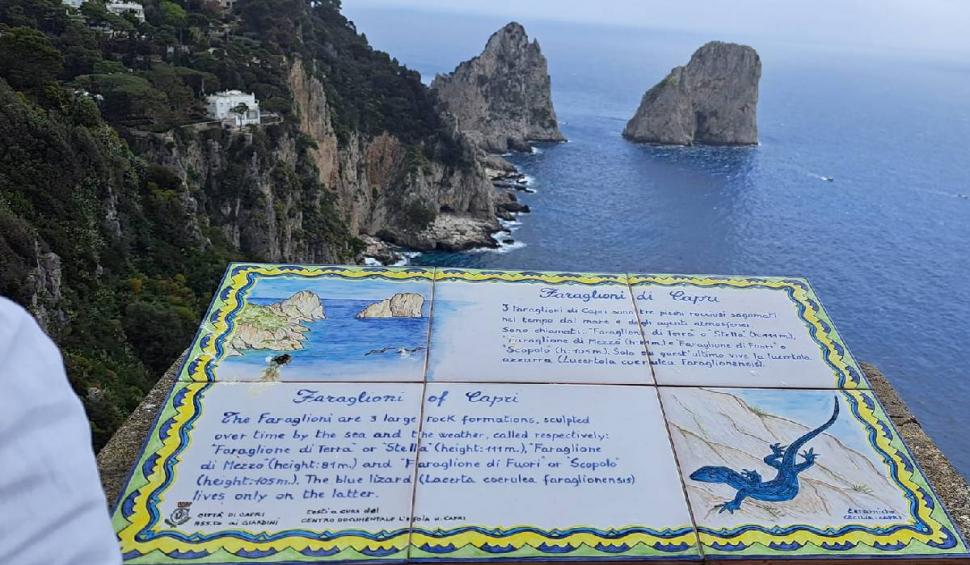 Faraglioni di Capri
I faraglioni di Capri sono tre picchi rocciosi sagomati
nel tempo dal mare e dagli agenti atmosferici
Sono chiamati: "Faraglione di Terra" o "Stella" (h:111m.),
"Faraglione di Mezzo (h:81m.) e "Faraglione di Fuori" o
"Scopolo (h:105m). Solo su quest'ultimo vive la lucertola
azzurra (Lacerta coerulea Faraglionensis).
Faraglioni of Capri
The Faraglioni are 3 large rock formations, sculpted
over time by the sea and the weather, called respectively:
"Faraglione di Terra" or "Stella" (height:111m.), "Faraglione
di Mezzo" (height:81m.) and "Faraglione di Fuori" or "Scopolo"
(height:105m.). The blue lizard (Lacerta coerulea faraglionensis)
lives only on the latter.
CITTÀ DI CAPRI
ASS.TO AI GIARDINI
testi a cura del
CENTRO DOCUMENTALE L'ISOLA DI CAPRI
Ceramiche
CECILIA - CAPRI